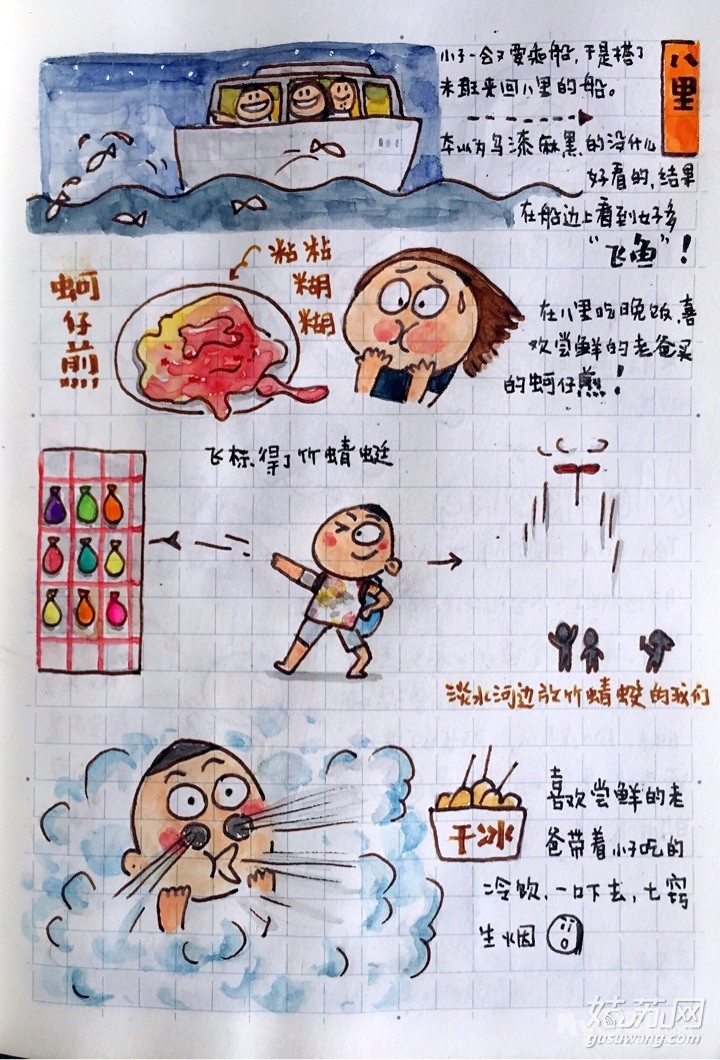 小子一会又要乘船，于是搭了
八里
末班来回八里的船。
本以为乌漆麻黑的没什么
好看的，结果
在船边上看到好多
“飞鱼”！
蚵仔煎
粘粘
糊
糊
在八里吃晚饭，喜
欢尝鲜的老爸买
的蚵仔煎！
飞标，得了竹蜻蜓
淡水河边放竹蜻蜓的我们
干冰
喜欢尝鲜的老
爸带着小子吃的
冷饮，一口下去，七窍
生烟
姑苏网
gusuwang.com